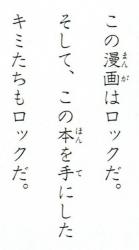 この漫画はロックだ。
そして、この本を手にした
キミたちもロックだ。